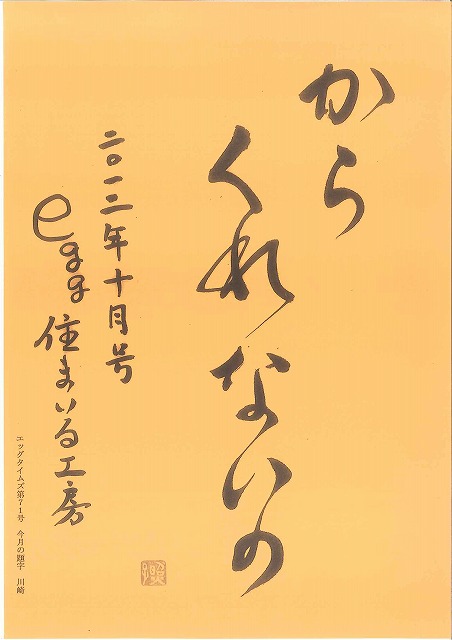 から
くれないの
二〇一二年十月号
egg 住まいる工房
エッグタイムズ第71号 今月の題字 川崎